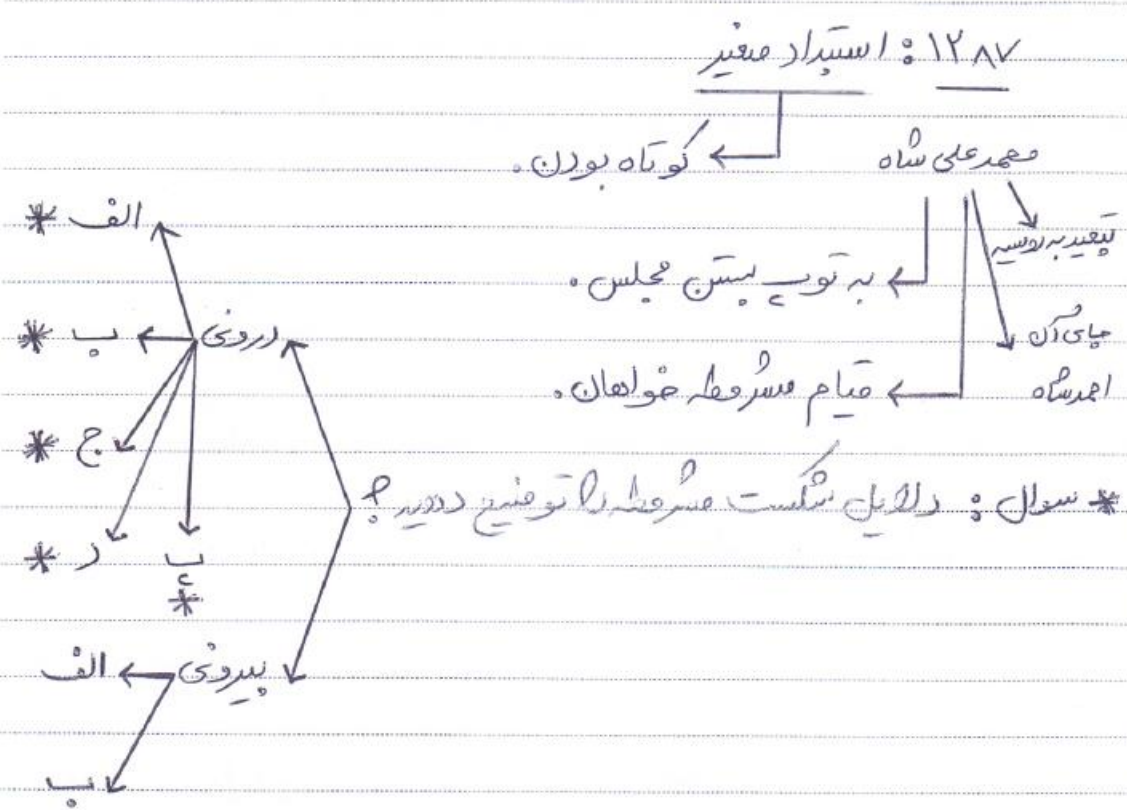 ۱۲۸۷: استبداد صغیر
کوتاه بودن.
محمد علی شاه
تبعید به روسیه
به توپ بستن مجلس.
جای آن
احمد شاه
قیام مشروطه خواهان.
* سوال: دلایل شکست مشروطه را توضیح دهید؟
درونی
الف *
ب *
ج *
د *
پ *
بیرونی
الف
ب